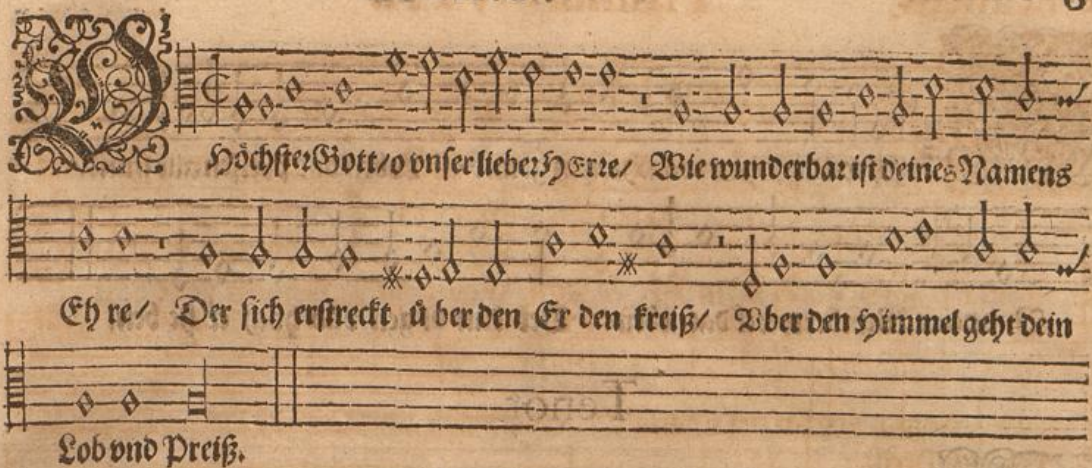 O HöchsterGott/o vnser lieber HErre/ Wie wunderbar ist deines Namens
Eh re/ Der sich erstreckt ů ber den Er den kreiß/ Vber den Himmel geht dein
Lob vnd Preiß.